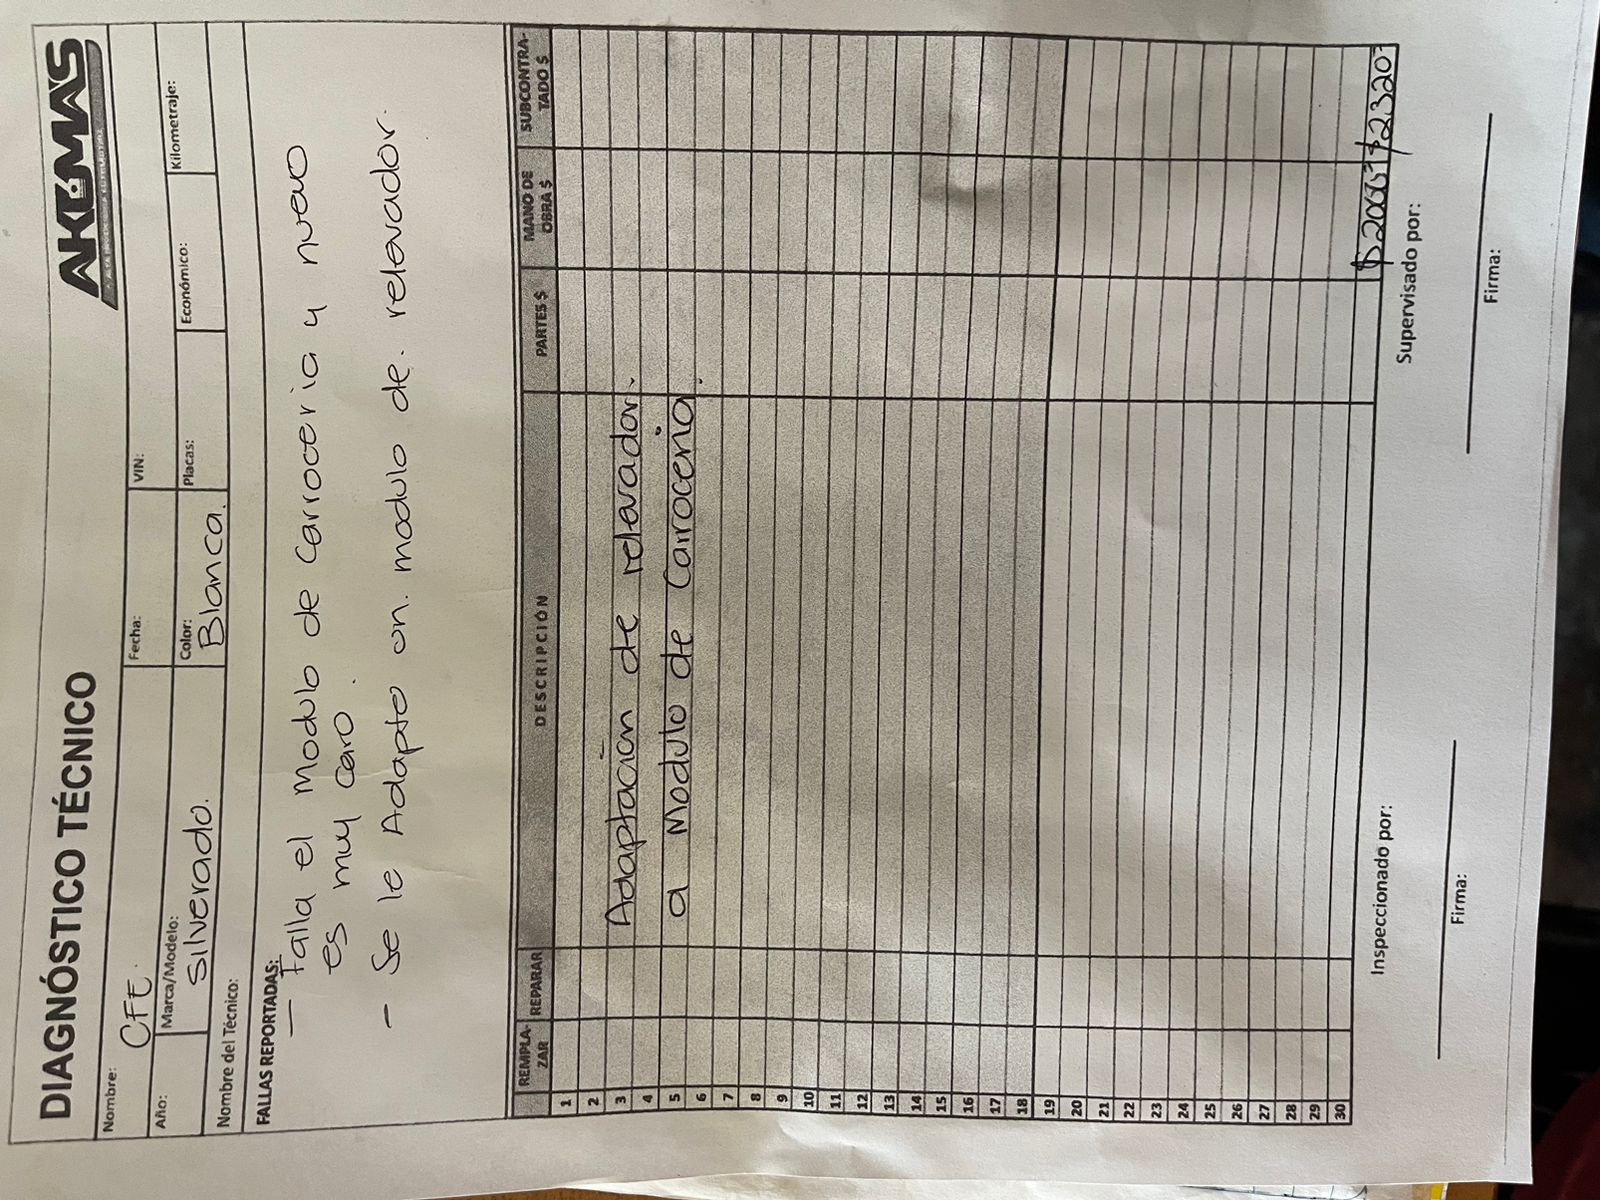 DIAGNÓSTICO TÉCNICO
AKEMAS
Nombre: CFE.
Fecha:
VIN:
Año:
Marca/Modelo: Silverado.
Color: Blanca.
Placas:
Económico:
Kilometraje:
Nombre del Técnico:
FALLAS REPORTADAS:
— Falla el Modulo de Carroceria y nuevo
es muy caro.
— Se le Adapto un. modulo de. relevador.
REMPLA-ZAR REPARAR DESCRIPCIÓN PARTES $ MANO DE OBRA $ SUBCONTRA-TADO $
1
2
3 Adaptacion de relevador.
4
5 a Modulo de Carroceria.
6
7
8
9
10
11
12
13
14
15
16
17
18
19
20
21
22
23
24
25
26
27
28
29
30
$2320
Inspeccionado por:
Supervisado por:
Firma:
Firma: